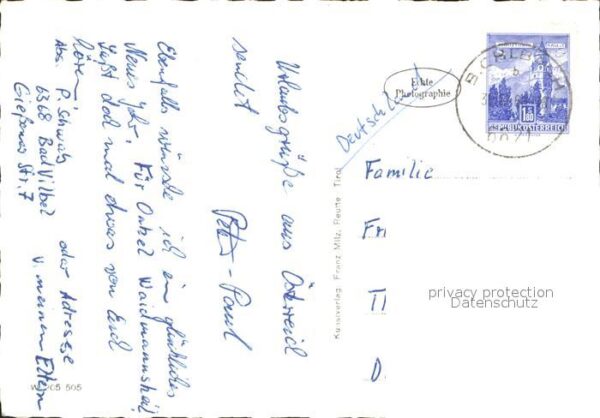 Urlaubsgrüße aus Österreich
sendet
Peter-Paul
Ebenfalls wünsche ich ein glückliches
Neues Jahr. Für Onkel Waidmannsheil
Laßt doch mal etwas von Euch
hören
Abs. P. Schwab
6368 Bad Vilbel
Gießener Str. 7
oder Adresse
v. meinen Eltern
W 705 505
Kunstverlag Franz Milz, Reutte - Tirol
Echte
Photographie
REPUBLIK ÖSTERREICH
Deutschland
Familie
Fr
Th
D.
privacy protection
Datenschutz